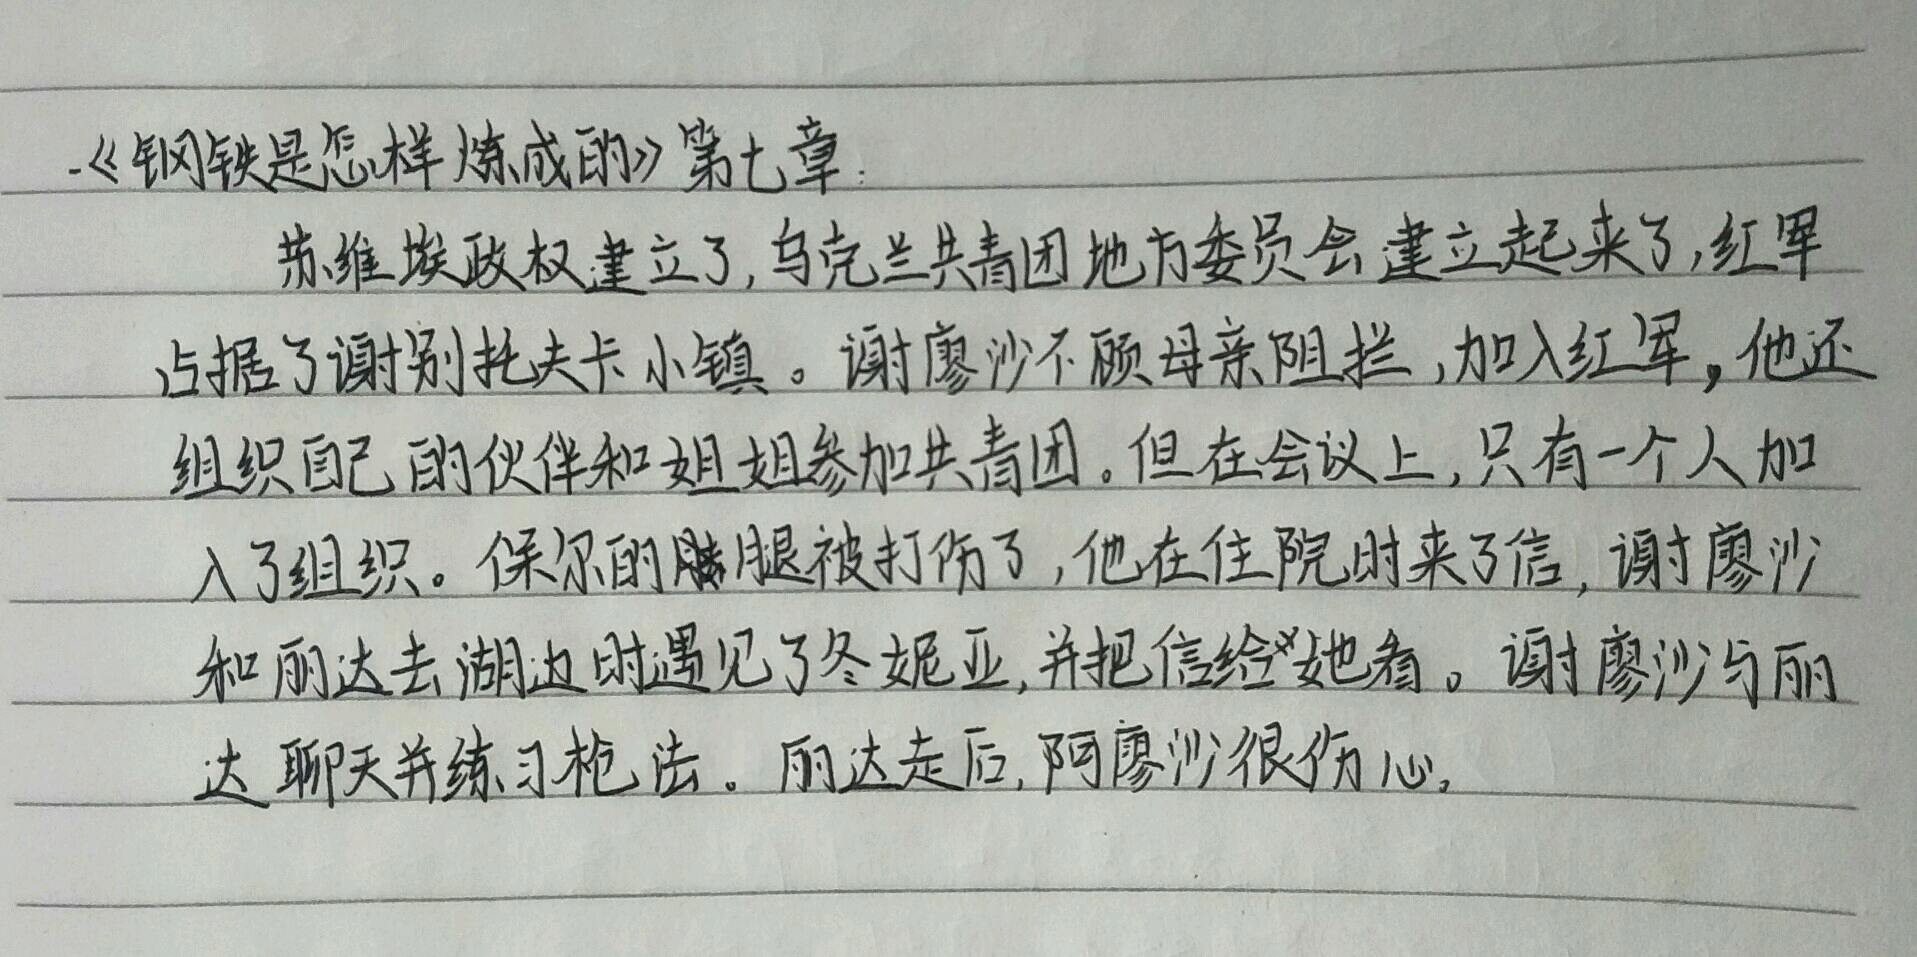 《钢铁是怎样炼成的》第七章:
苏维埃政权建立了,乌克兰共青团地方委员会建立起来了,红军
占据了谢别托夫卡小镇。谢廖沙不顾母亲阻拦,加入红军,他还
组织自己的伙伴和姐姐参加共青团。但在会议上,只有一个人加
入了组织。保尔的腿被打伤了,他在住院时来了信,谢廖沙
和丽达去湖边时遇见了冬妮亚,并把信给她看。谢廖沙与丽
达聊天并练习枪法。丽达走后,阿廖沙很伤心。